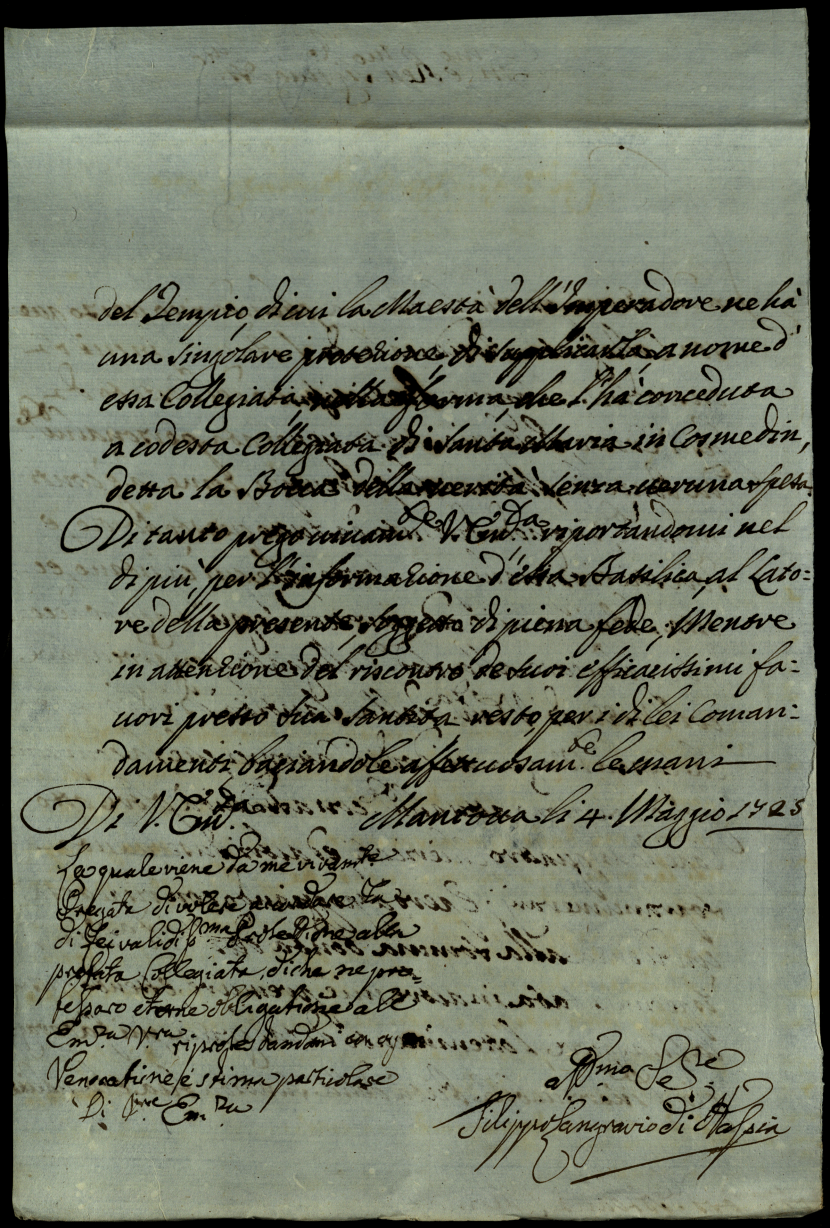 del Tempio, di cui la Maestà dell'Imperadore ne hà
una singolare protezione, di supplicarla, a nome d'
essa Collegiata, nella forma, che l'hà conceduta
a codesta Collegiata di Santa Maria in Cosmedin,
detta la Bocca della verità senza veruna spesa.
Di tanto prego vivam.te V. Em.za riportandomi nel
di più, per l'informazione d'essa Basilica, al Lato=
re della presente, soggetto di piena fede, Mentre
in attenzione del riscontro de suoi efficacissimi fa=
vori presso Sua Santità resto, per i di lei Coman=
damenti, baciandole affettuosam.te le mani
Di V. Em.za Mantova li 4. Maggio 1725
La quale viene da me vivam.te
Pregata di volere accordare la
di Lei validis.ma Protetione alla
prefata Collegiata, di che ne pro=
fessaro eterne obligatione alle
Em.za V.ra riprotestandomi con ogni
Veneratione e stima particolare
Di V.re Em.za
Aff.mo Se.re
Filippo Langravio di Hassia